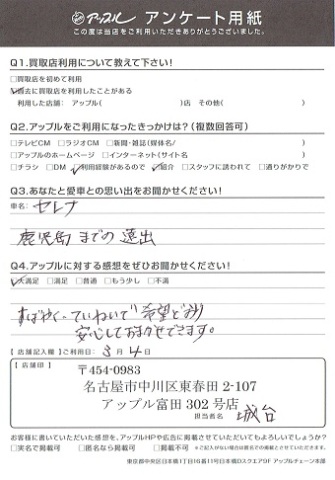 アップル アンケート用紙
この度は当店をご利用いただきありがとうございました。
Q1.買取店利用について教えて下さい!
□買取店を初めて利用
☑過去に買取店を利用したことがある
利用した店舗: アップル( )店 その他( )
Q2.アップルをご利用になったきっかけは?(複数回答可)
□テレビCM □ラジオCM □新聞・雑誌(媒体名/ )
□アップルのホームページ □インターネット(サイト名 )
□チラシ □DM ☑利用経験があるので ☑紹介 □スタッフに誘われて □通りがかりで
Q3.あなたと愛車との思い出をお聞かせください!
車名: セレナ
鹿児島までの遠出
Q4.アップルに対する感想をぜひお聞かせください!
☑大満足 □満足 □普通 □もう少し □不満
すばやく、ていねいで希望どおり
安心しておまかせできます。
【店舗記入欄】ご利用日: 3月4日
【店舗印】
〒454-0983
名古屋市中川区東春田 2-107
アップル富田 302 号店
担当者名 城台
お客様に書いていただいた感想を、アップルHPや広告に掲載させていただいてもよろしいでしょうか?
□実名で掲載可 □匿名なら掲載可 □掲載不可 *ご記入がない場合は匿名での掲載とさせていただきます。
東京都中央区日本橋1丁目16番11号日本橋DスクエアDF アップルチェーン本部